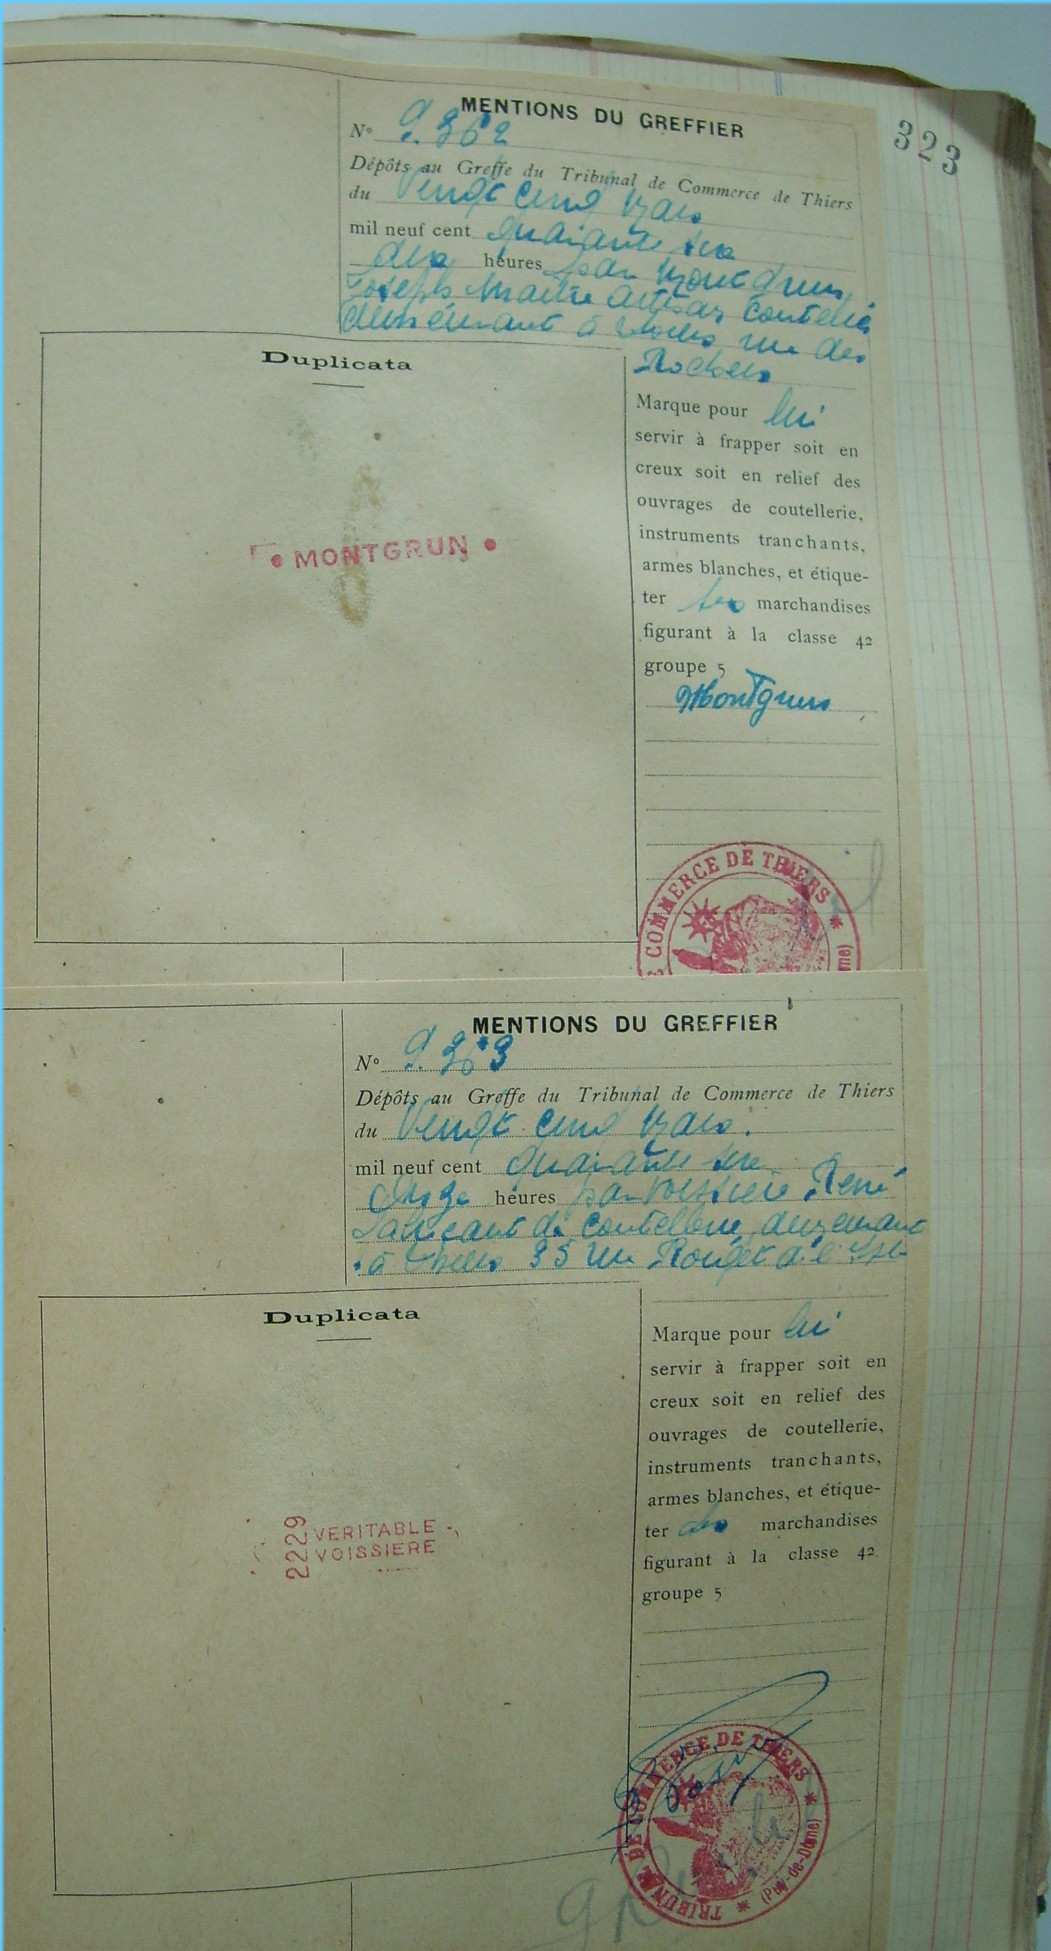 323
MENTIONS DU GREFFIER
N° 9.362
Dépôts au Greffe du Tribunal de Commerce de Thiers
du Vingt cinq Mars
mil neuf cent quarante six
dix heures par Montgrun
Joseph Maître Artisan Coutelier
demeurant à Thiers rue des
Rochers
Duplicata
Marque pour lui
servir à frapper soit en
creux soit en relief des
ouvrages de coutellerie,
instruments tranchants,
armes blanches, et étique-
ter ses marchandises
figurant à la classe 42
groupe 5
Montgrun
• MONTGRUN •
COMMERCE DE THIERS *
MENTIONS DU GREFFIER
N° 9.363
Dépôts au Greffe du Tribunal de Commerce de Thiers
du Vingt cinq Mars.
mil neuf cent quarante six
Onze heures par Voissière René
fabricant de coutellerie, demeurant
à Thiers 35 rue Rouget de l'Isle
Duplicata
Marque pour lui
servir à frapper soit en
creux soit en relief des
ouvrages de coutellerie,
instruments tranchants,
armes blanches, et étique-
ter des marchandises
figurant à la classe 42
groupe 5
2229 VERITABLE
VOISSIERE
TRIBUNAL DE COMMERCE DE THIERS * (Puy-de-Dôme) *